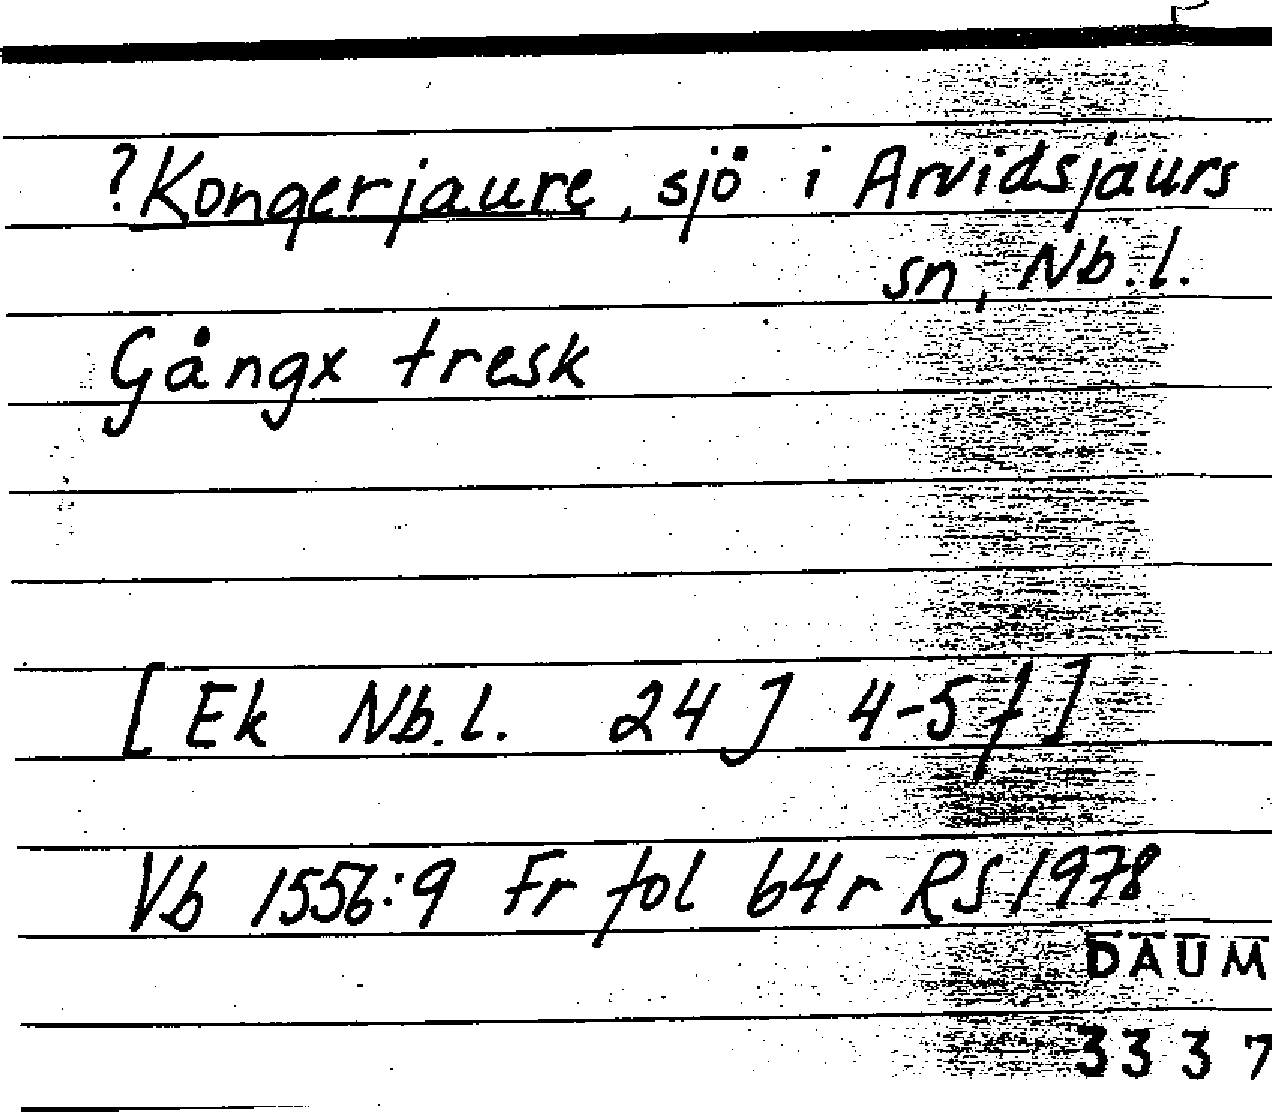 ?Kongerjaure, sjö i Arvidsjaurs
sn, Nb.l.
Gångx tresk
[Ek Nb.l. 24 J 4-5 f]
Vb 1556:9 Fr fol 64r RS 1978
DAUM
3337